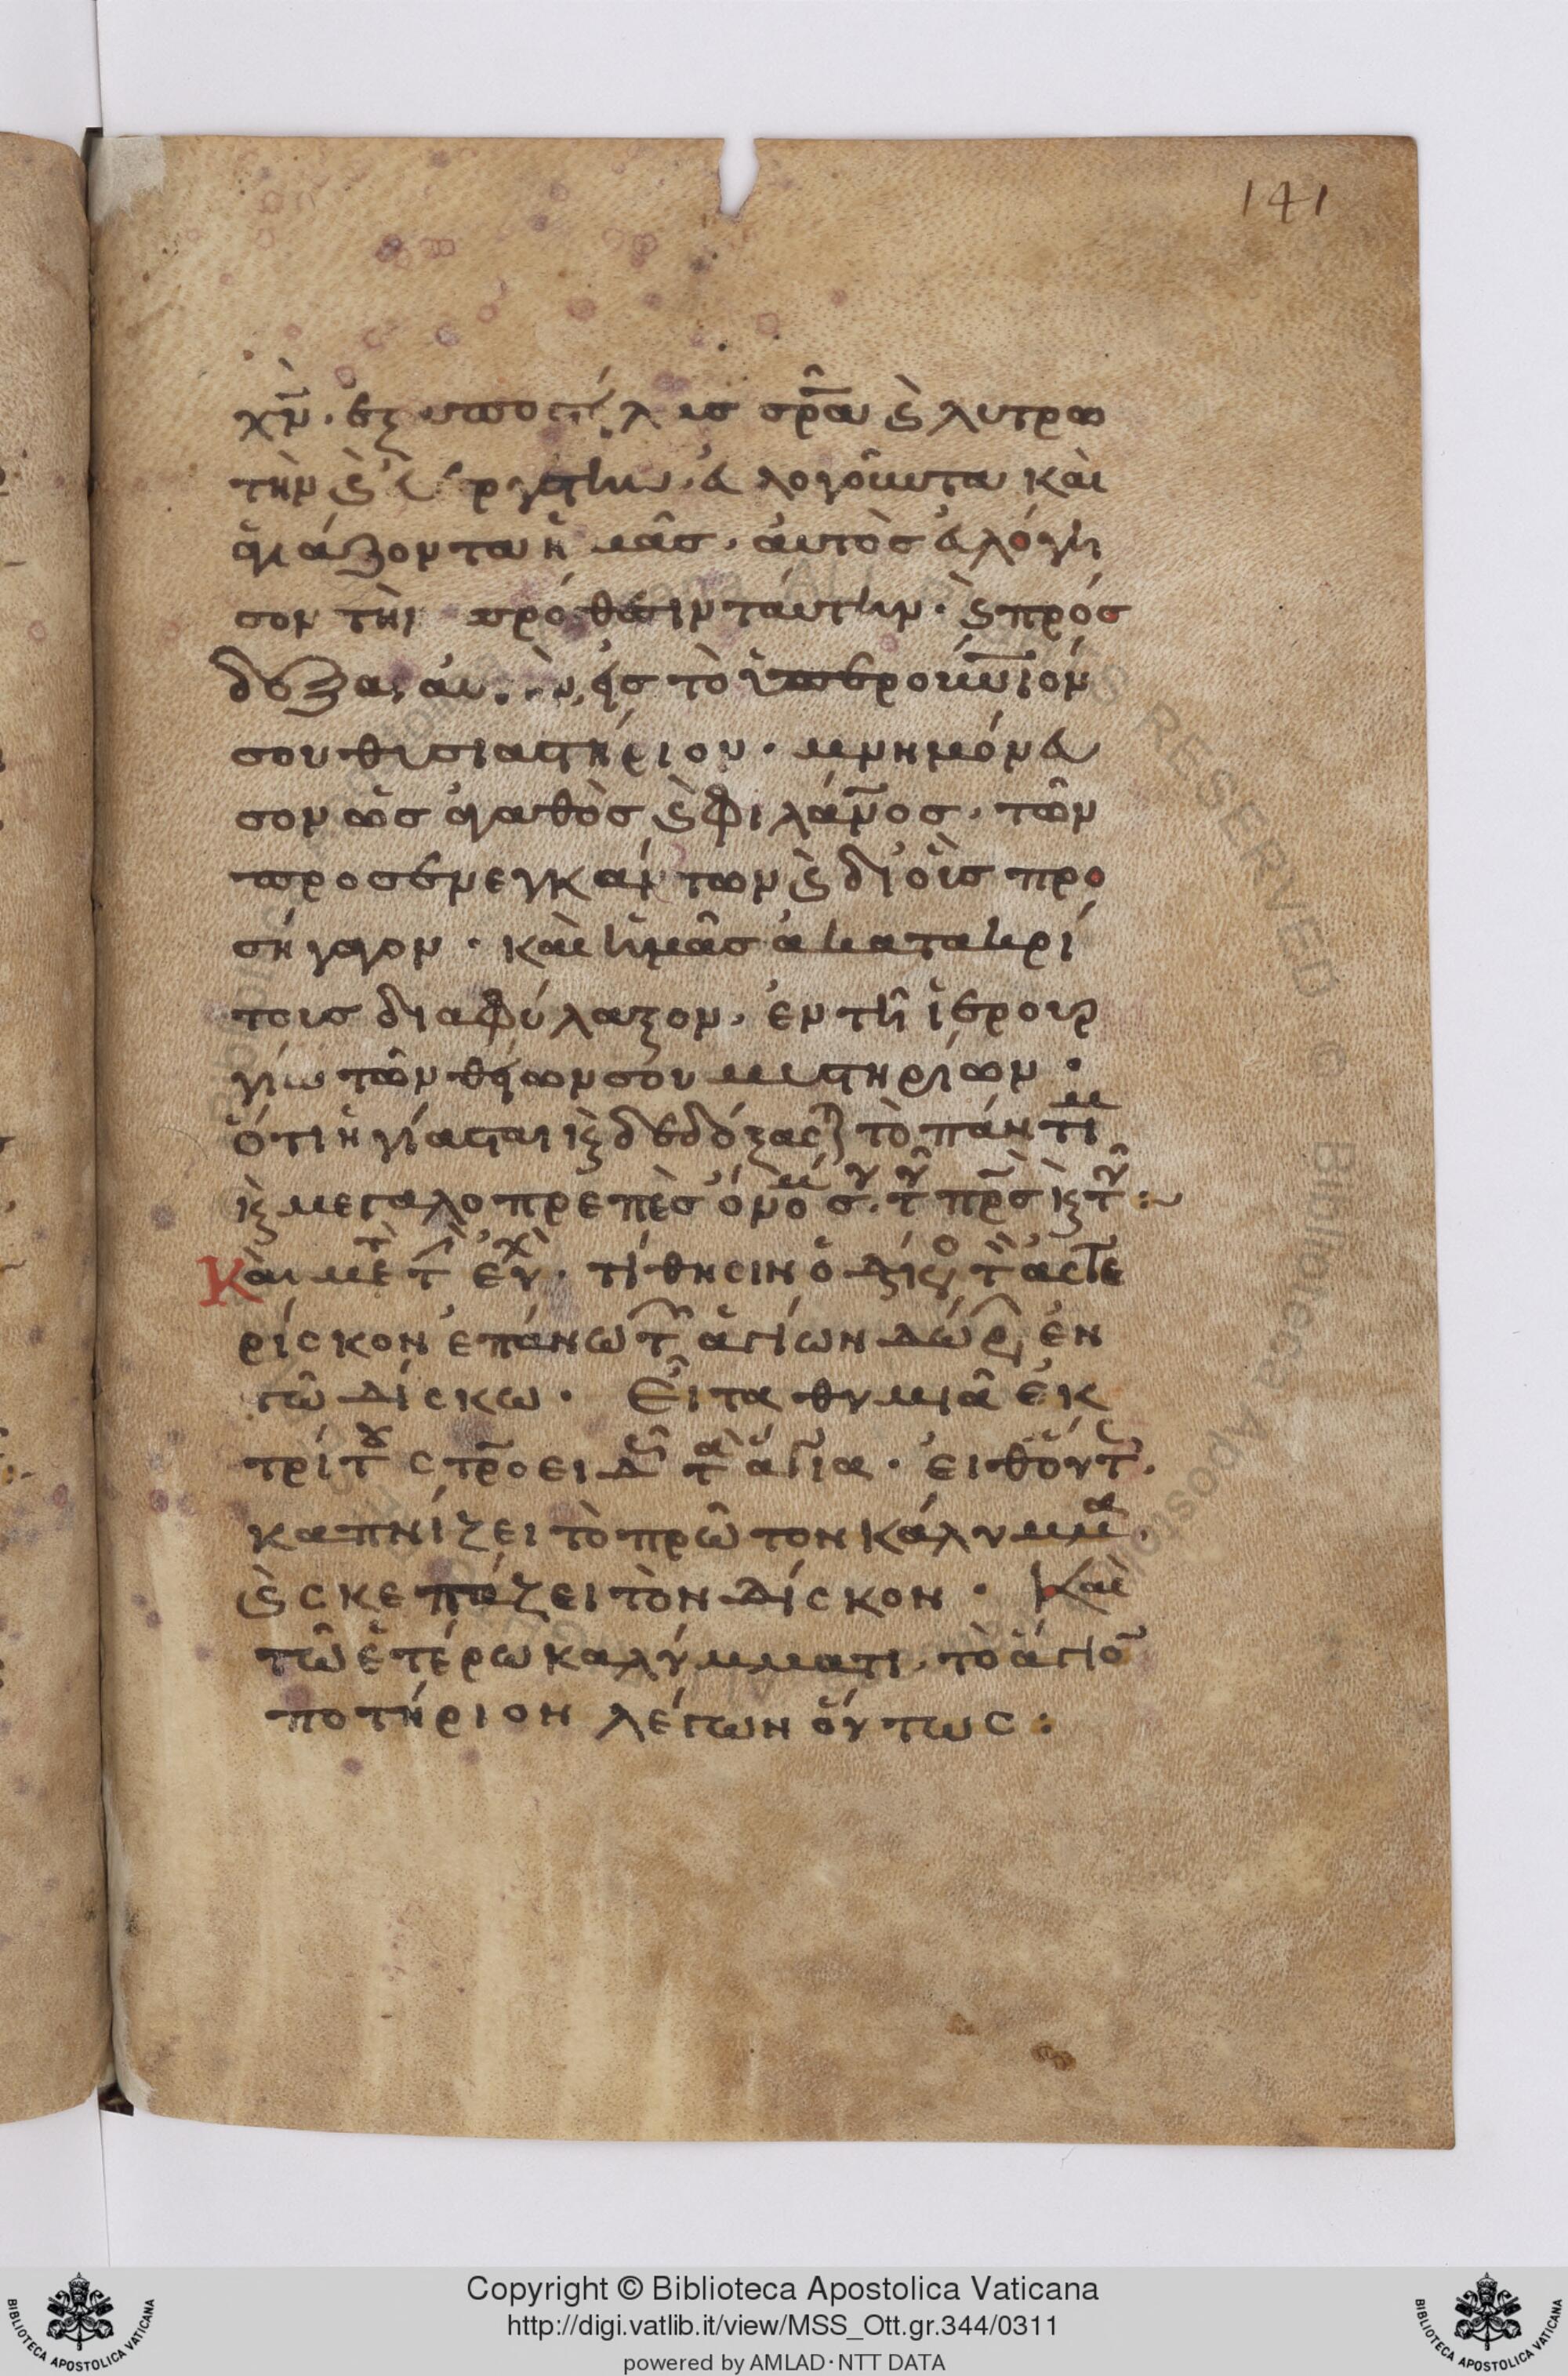 141
χν̅. ἐξαποστείλας σρ̅α κ̀ λυτρω
τὴν κ̀ εὐεργέτην, εὐλογοῦντα καὶ
ἁγιάζοντα ἡμᾶς. αὐτὸς εὐλόγη
σον τὴν πρόθεσιν ταύτην. κ̀ πρόσ
δεξαι αὐτὴν εἰς τὸ ὑπερουν̅ιόν
σου θυσιαστήριον. μνημόνευ
σον ὡς ἀγαθὸς κ̀ φιλάν̅ος. τῶν
προσενεγκάντων κ̀ δι' οὓς προ
σήγαγον. καὶ ἡμᾶς ἀκατακρί
τους διαφύλαξον. ἐν τῇ ἱερουρ
γία τῶν θείων σου μυστηρίων.
ὅτι ἡγίασται κ̀ δεδόξασται τὸ πάντιμ
κ̀ μεγαλοπρεπὲς ὄνομά σου. τοῦ πρ̅ς κ̀ τοῦ υ:~
Καὶ μετ τ εὐχ. τίθησιν ὁ διάκο τ ἀστε
ρίσκον ἐπάνω τῶν ἁγίων δώρ ἐν
τῶ δίσκω. Εἶτα θυμιᾶ ἐκ
τρίτου στρ̅οειδῶς τὰ ἅγια. εἶθ' οὕτ.
καπνίζει τὸ πρῶτον κάλυμμα.
κ̀ σκεπάζει τὸν δίσκον. Καὶ
τῶ ἑτέρω καλύμματι, τὸ ἅγιο̅
ποτήριον λέγων οὕτως:
Copyright © Biblioteca Apostolica Vaticana
http://digi.vatlib.it/view/MSS_Ott.gr.344/0311
powered by AMLAD·NTT DATA
BIBLIOTECA APOSTOLICA VATICANA
BIBLIOTECA APOSTOLICA VATICANA